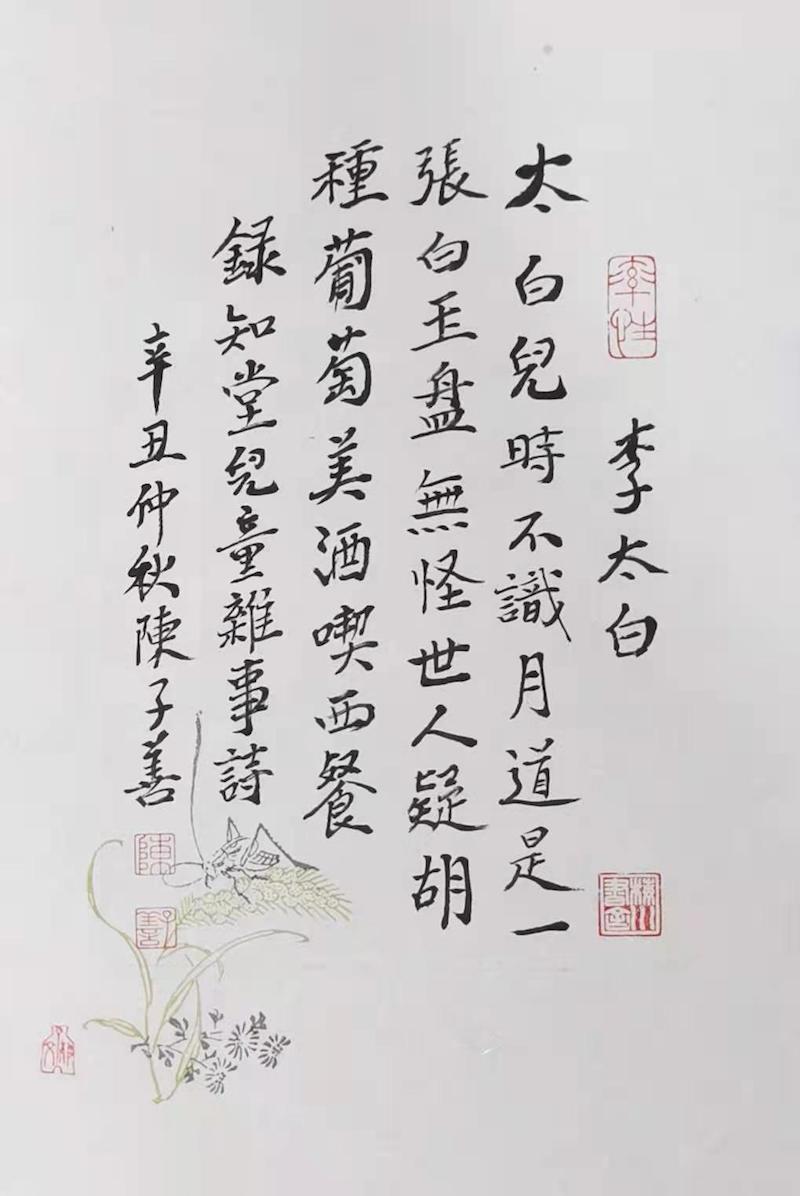 李太白
太白兒時不識月道是一
張白玉盤無怪世人疑胡
種葡萄美酒喫西餐
録知堂兒童雜事詩
辛丑仲秋陳子善
率性
陳